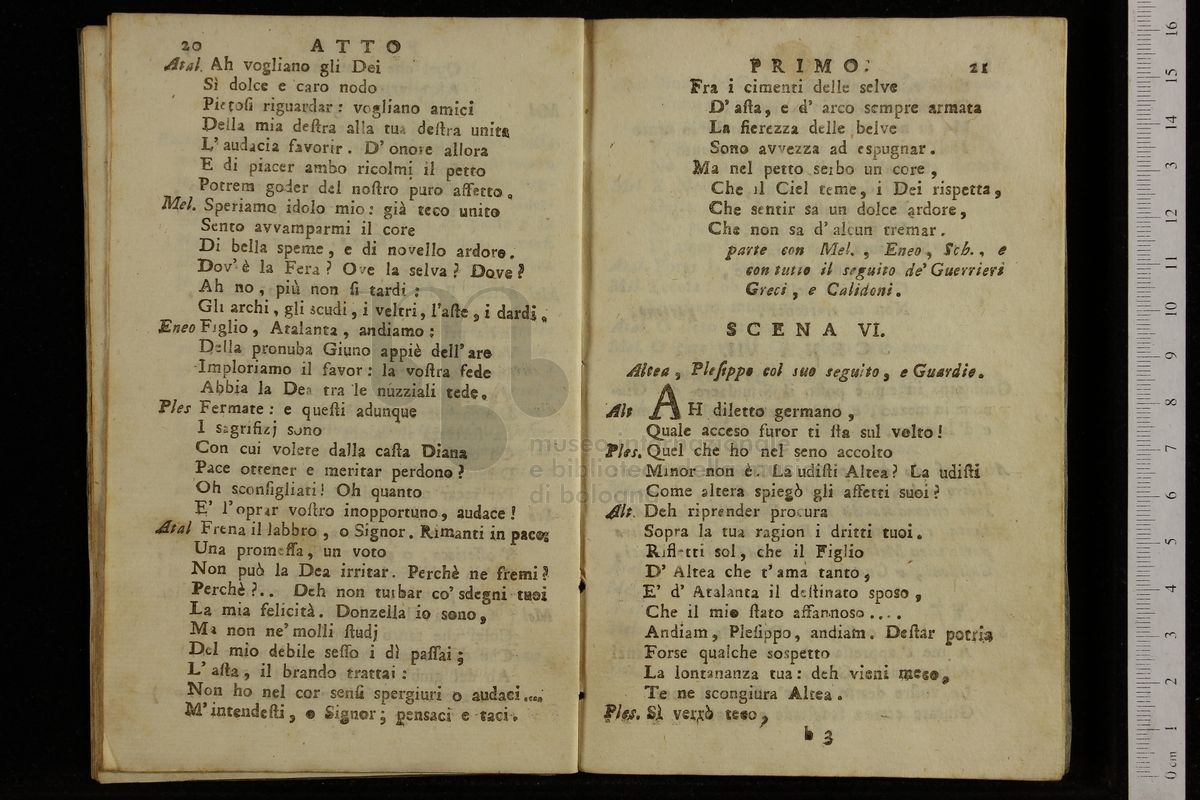 20 ATTO
Atal. Ah vogliano gli Dei
Sì dolce e caro nodo
Pietoſi riguardar: vogliano amici
Della mia deſtra alla tua deſtra unita
L' audacia favorir. D' onore allora
E di piacer ambo ricolmi il petto
Potrem goder del noſtro puro affetto.
Mel. Speriamo idolo mio: già teco unito
Sento avvamparmi il core
Di bella speme, e di novello ardore.
Dov' è la Fera? Ove la selva? Dove?
Ah no, più non ſi tardi:
Gli archi, gli scudi, i veltri, l'aſte, i dardi.
Eneo Figlio, Atalanta, andiamo:
Della pronuba Giuno appiè dell' are
Imploriamo il favor: la voſtra fede
Abbia la Dea tra le nuzziali tede.
Ples Fermate: e queſti adunque
I sagrifizj sono
Con cui volete dalla caſta Diana
Pace ottener e meritar perdono?
Oh sconſigliati! Oh quanto
E' l'oprar voſtro inopportuno, audace!
Atal Frena il labbro, o Signor. Rimanti in pace:
Una promeſſa, un voto
Non può la Dea irritar. Perchè ne fremi?
Perchè?.. Deh non turbar co' sdegni tuoi
La mia felicità. Donzella io sono,
Ma non ne' molli ſtudj
Del mio debile seſſo i dì paſſai;
L' aſta, il brando trattai:
Non ho nel cor senſi spergiuri o audaci....
M'intendeſti, o Signor; pensaci e taci.
PRIMO. 21
Fra i cimenti delle selve
D' aſta, e d' arco sempre armata
La fierezza delle belve
Sono avvezza ad espugnar.
Ma nel petto serbo un core,
Che il Ciel teme, i Dei rispetta,
Che sentir sa un dolce ardore,
Che non sa d' alcun tremar.
parte con Mel., Eneo, Sch., e
con tutto il seguito de' Guerrieri
Greci, e Calidoni.
SCENA VI.
Altea, Pleſippo col suo seguito, e Guardie.
Alt AH diletto germano,
Quale acceso furor ti ſta sul volto!
Ples. Quel che ho nel seno accolto
Minor non è. La udiſti Altea? La udiſti
Come altera spiegò gli affetti suoi?
Alt. Deh riprender procura
Sopra la tua ragion i dritti tuoi.
Rifletti sol, che il Figlio
D' Altea che t' ama tanto,
E' d' Atalanta il deſtinato sposo,
Che il mio ſtato affannoso....
Andiam, Pleſippo, andiam. Deſtar potria
Forse qualche sospetto
La lontananza tua: deh vieni meco,
Te ne scongiura Altea.
Ples. Sì verrò teco,
b 3
museo internazionale
e biblioteca della musica
di bologna
0 cm 1 2 3 4 5 6 7 8 9 10 11 12 13 14 15 16